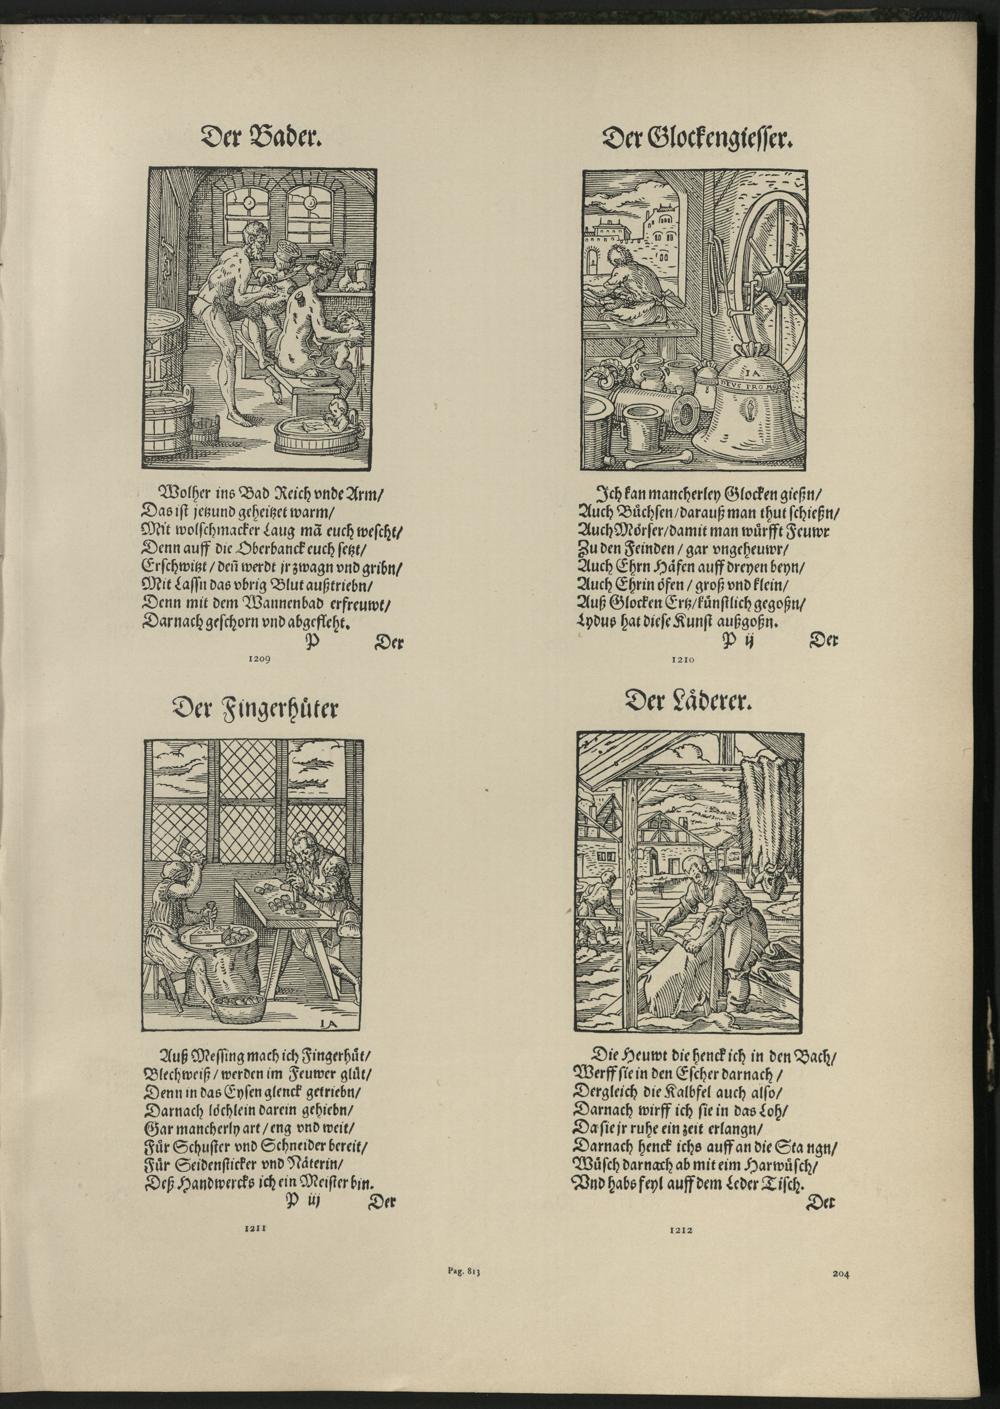 Der Bader.
Wolher ins Bad Reich vnde Arm/
Das ist jetzund geheitzet warm/
Mit wolschmacker Laug mã euch wescht/
Denn auff die Oberbanck euch setzt/
Erschwitzt / deñ werdt jr zwagn vnd gribn/
Mit Lassn das vbrig Blut außtriebn/
Denn mit dem Wannenbad erfreuwt/
Darnach geschorn vnd abgefleht.
P Der
1209
Der Glockengiesser.
IA
DEVS PRO
Ich kan mancherley Glocken gießn/
Auch Büchsen/darauß man thut schießn/
Auch Mörser/damit man würfft Feuwr
Zu den Feinden / gar vngeheuwr/
Auch Ehrn Häfen auff dreyen beyn/
Auch Ehrin öfen / groß vnd klein/
Auß Glocken Ertz/künstlich gegoßn/
Lydus hat diese Kunst außgoßn.
P ij Der
1210
Der Fingerhüter
IA
Auß Messing mach ich Fingerhüt/
Blechweiß / werden im Feuwer glüt/
Denn in das Eysen glenck getriebn/
Darnach löchlein darein gehiebn/
Gar mancherly art / eng vnd weit/
Für Schuster vnd Schneider bereit/
Für Seidensticker vnd Näterin/
Deß Handwercks ich ein Meister bin.
P iij Der
1211
Der Låderer.
Die Heuwt die henck ich in den Bach/
Werff sie in den Escher darnach /
Dergleich die Kalbfel auch also/
Darnach wirff ich sie in das Loh/
Da sie jr ruhe ein zeit erlangn/
Darnach henck ichs auff an die Sta ngn/
Wüsch darnach ab mit eim Harwüsch/
Vnd habs feyl auff dem Leder Tisch.
Der
1212
Pag. 813
204